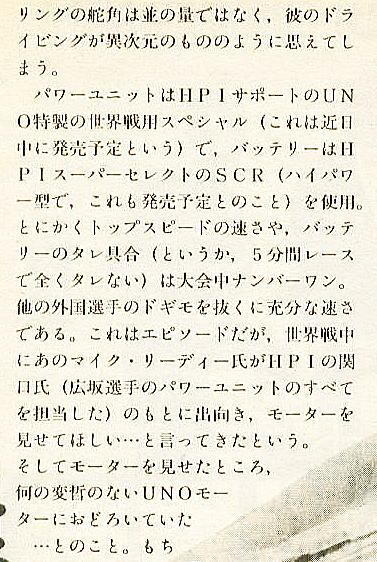 リングの舵角は並の量ではなく，彼のドラ
イビングが異次元のもののように思えてし
まう。
　パワーユニットはＨＰＩサポートのＵＮ
Ｏ特製の世界戦用スペシャル（これは近日
中に発売予定という）で，バッテリーはＨ
ＰＩスーパーセレクトのＳＣＲ（ハイパワ
ー型で，これも発売予定とのこと）を使用。
とにかくトップスピードの速さや，バッテ
リーのタレ具合（というか，５分間レース
で全くタレない）は大会中ナンバーワン。
他の外国選手のドギモを抜くに充分な速さ
である。これはエピソードだが，世界戦中
にあのマイク・リーディー氏がＨＰＩの関
口氏（広坂選手のパワーユニットのすべて
を担当した）のもとに出向き，モーターを
見せてほしい…と言ってきたという。
そしてモーターを見せたところ，
何の変哲のないＵＮＯモー
ターにおどろいていた
　…とのこと。もち